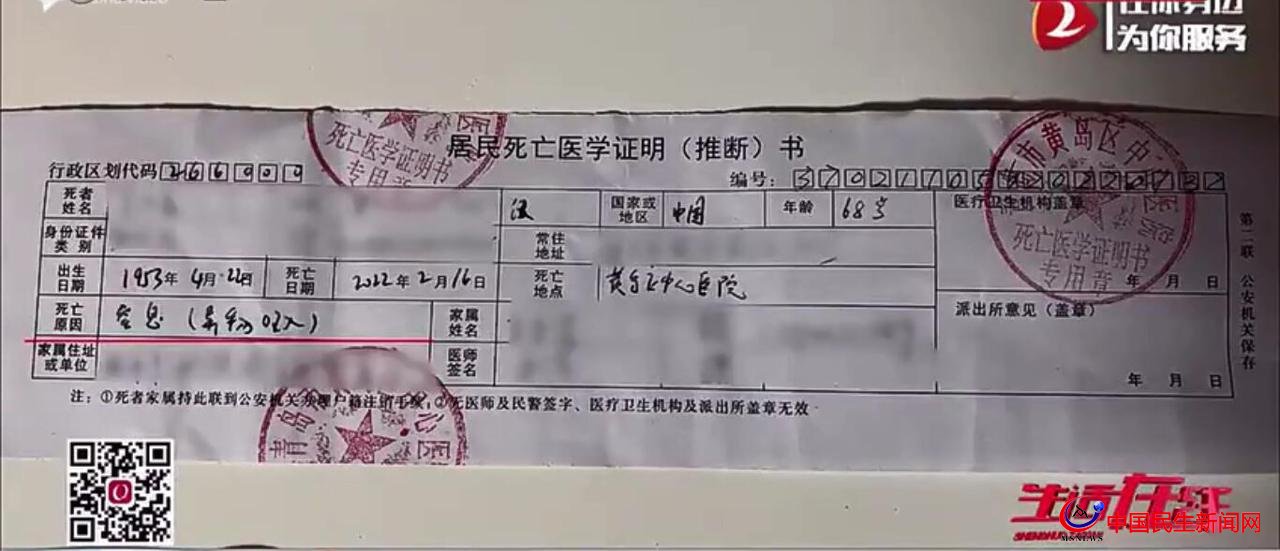 为你服务
居民死亡医学证明（推断）书
行政区划代码 266000
编号：
死者姓名
汉
国家或地区 中国
年龄 68岁
医疗卫生机构盖章
身份证件类别
常住地址
年 月 日
出生日期 1953年4月22日
死亡日期 2022年2月16日
死亡地点 黄岛区中心医院
派出所意见（盖章）
死亡原因 窒息（异物吸入）
家属姓名
家属住址或单位
医师签名
年 月 日
第二联 公安机关保存
注：①死者家属持此联到公安机关办理户籍注销手续，②无医师及民警签字、医疗卫生机构及派出所盖章无效
死亡医学证明书
专用章
市黄岛区中
死亡医学证明书
专用章
生活在线
中国民生新闻网